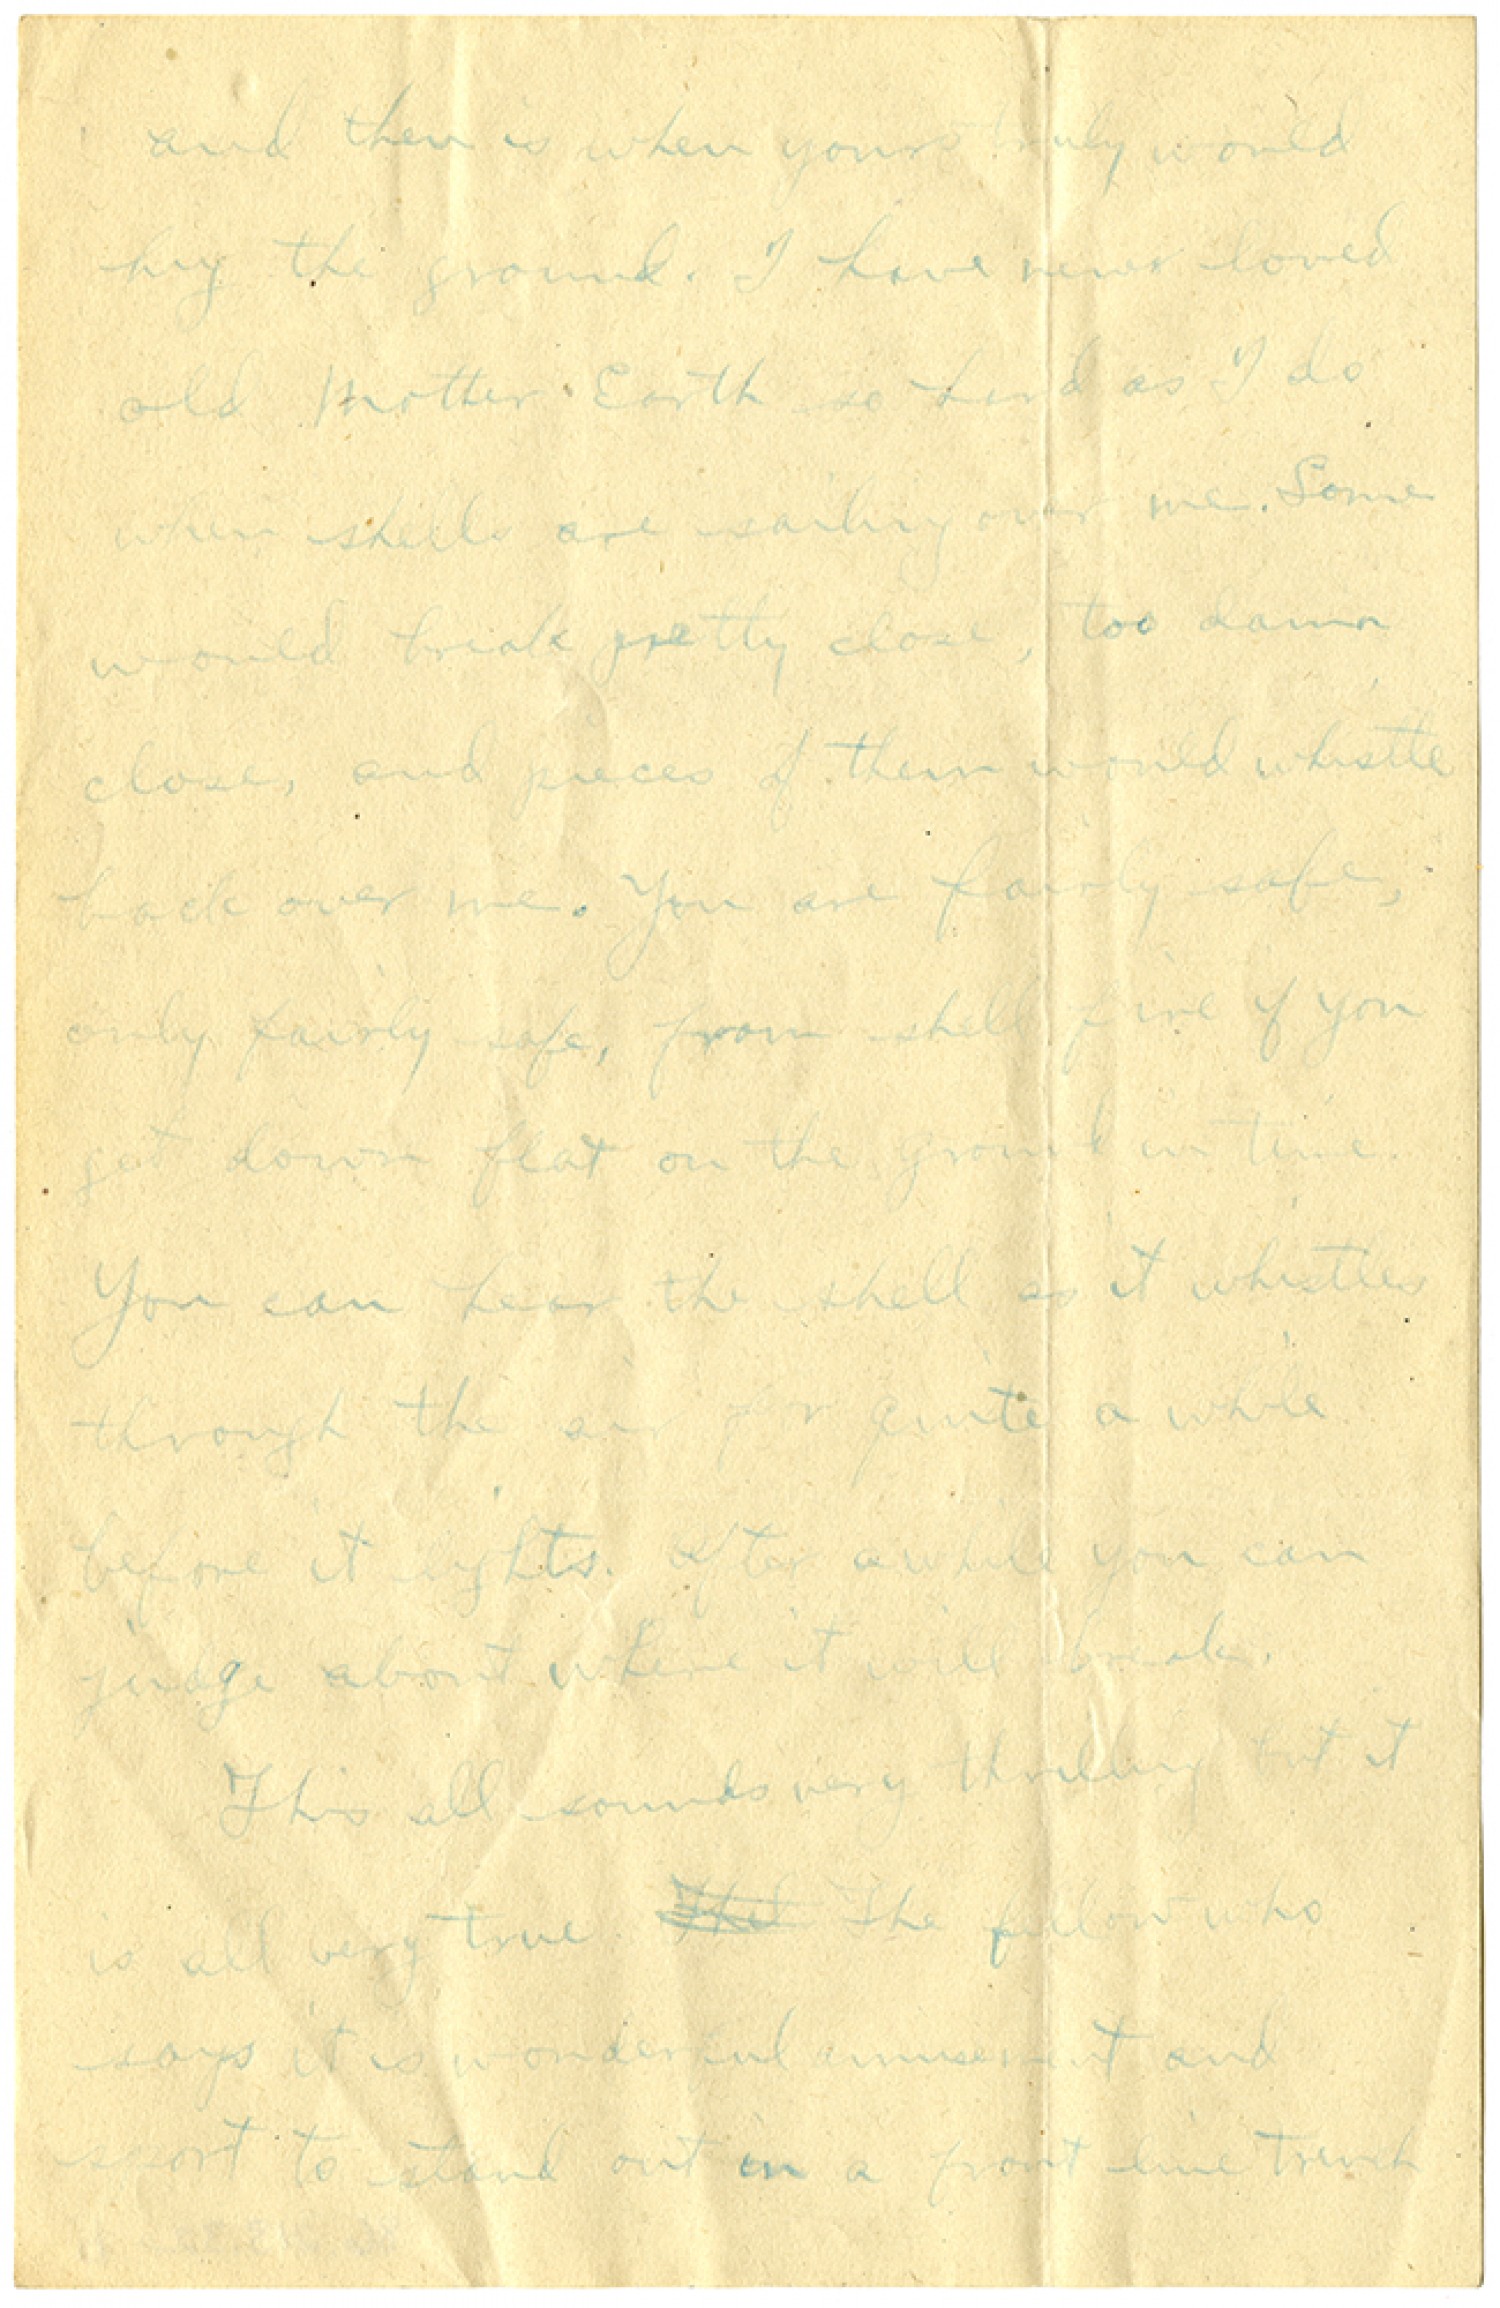 and then is when yours truly would
hug the ground. I have never loved
old Mother Earth so hard as I do
when shells are sailing over me. Some
would break pretty close, too damn
close, and pieces of them would whistle
back over me. You are fairly safe,
only fairly safe, from shell fire if you
get down flat on the ground in time.
You can hear the shell as it whistles
through the air for quite a while
before it lights. After awhile you can
judge about where it will break.
This all sounds very thrilling but it
is all very true. The fellow who
says it is wonderful amusement and
sport to stand out in a front line trench